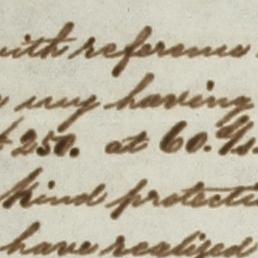 with reference
my having
250. at 60. d/s.
kind protecti
have realised